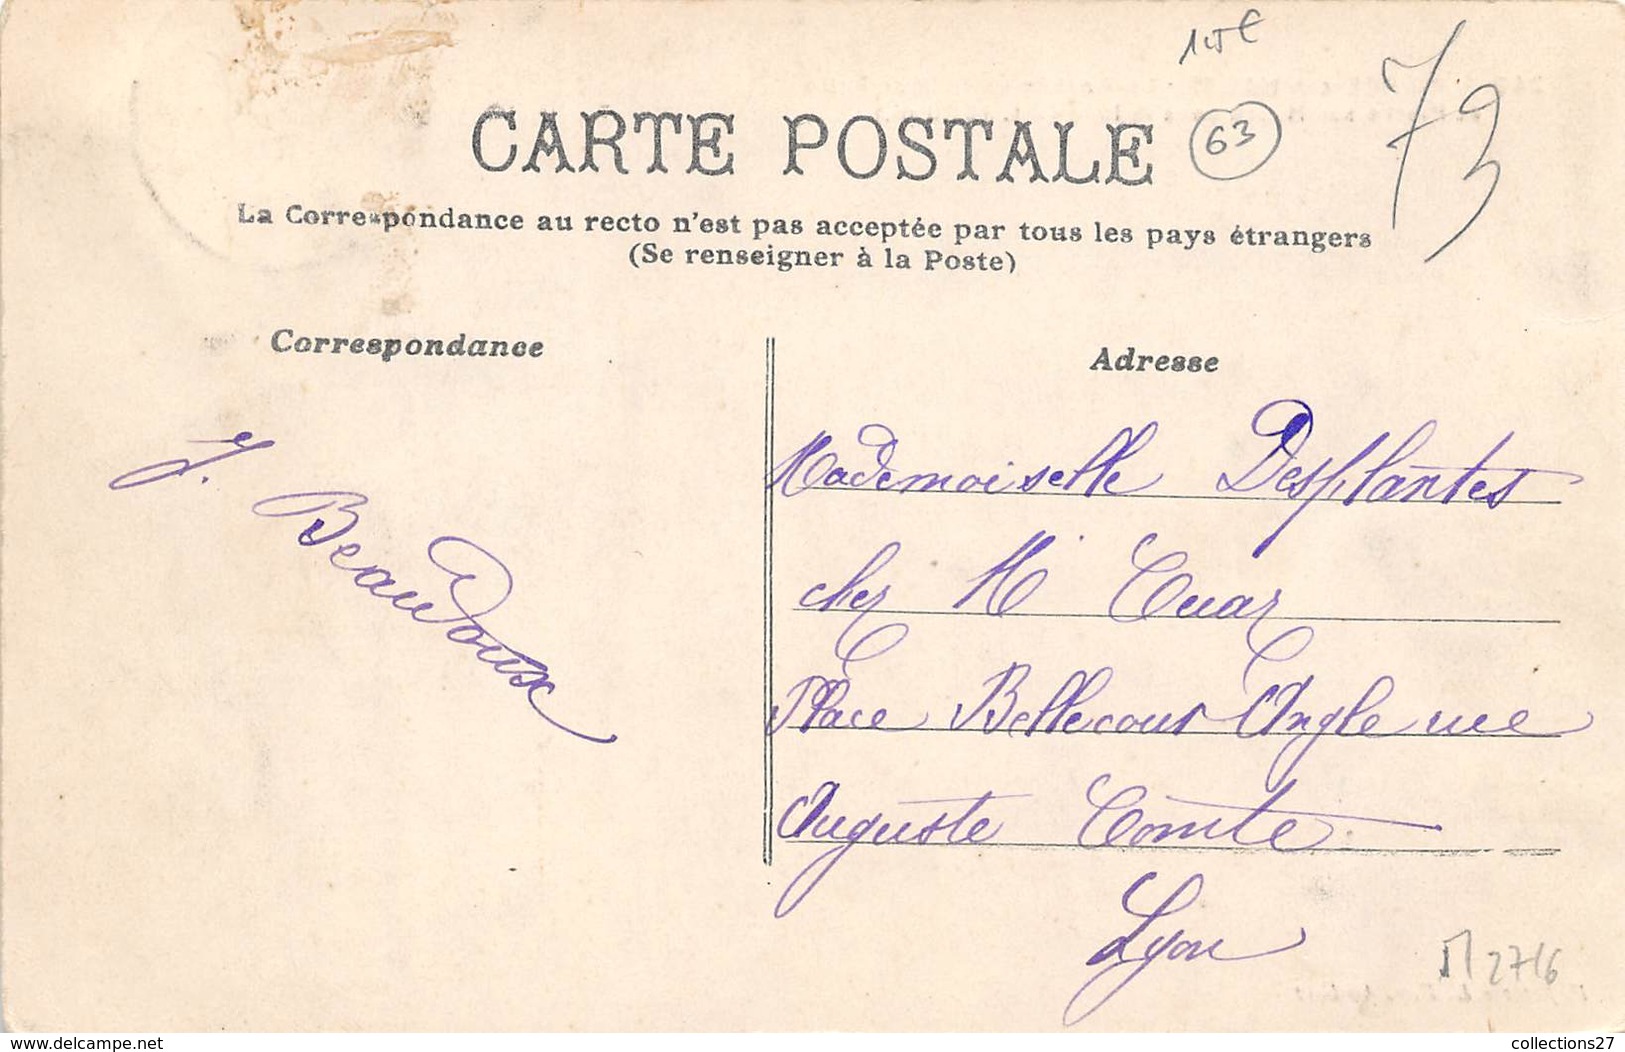 15€
73
CARTE POSTALE
63
La Correspondance au recto n'est pas acceptée par tous les pays étrangers
(Se renseigner à la Poste)
Correspondance
Adresse
J. Beaudoux
Mademoiselle Desplantes
chez M
Place Bellecour Angle rue
Auguste Comte
Lyon
www.delcampe.net
collections27